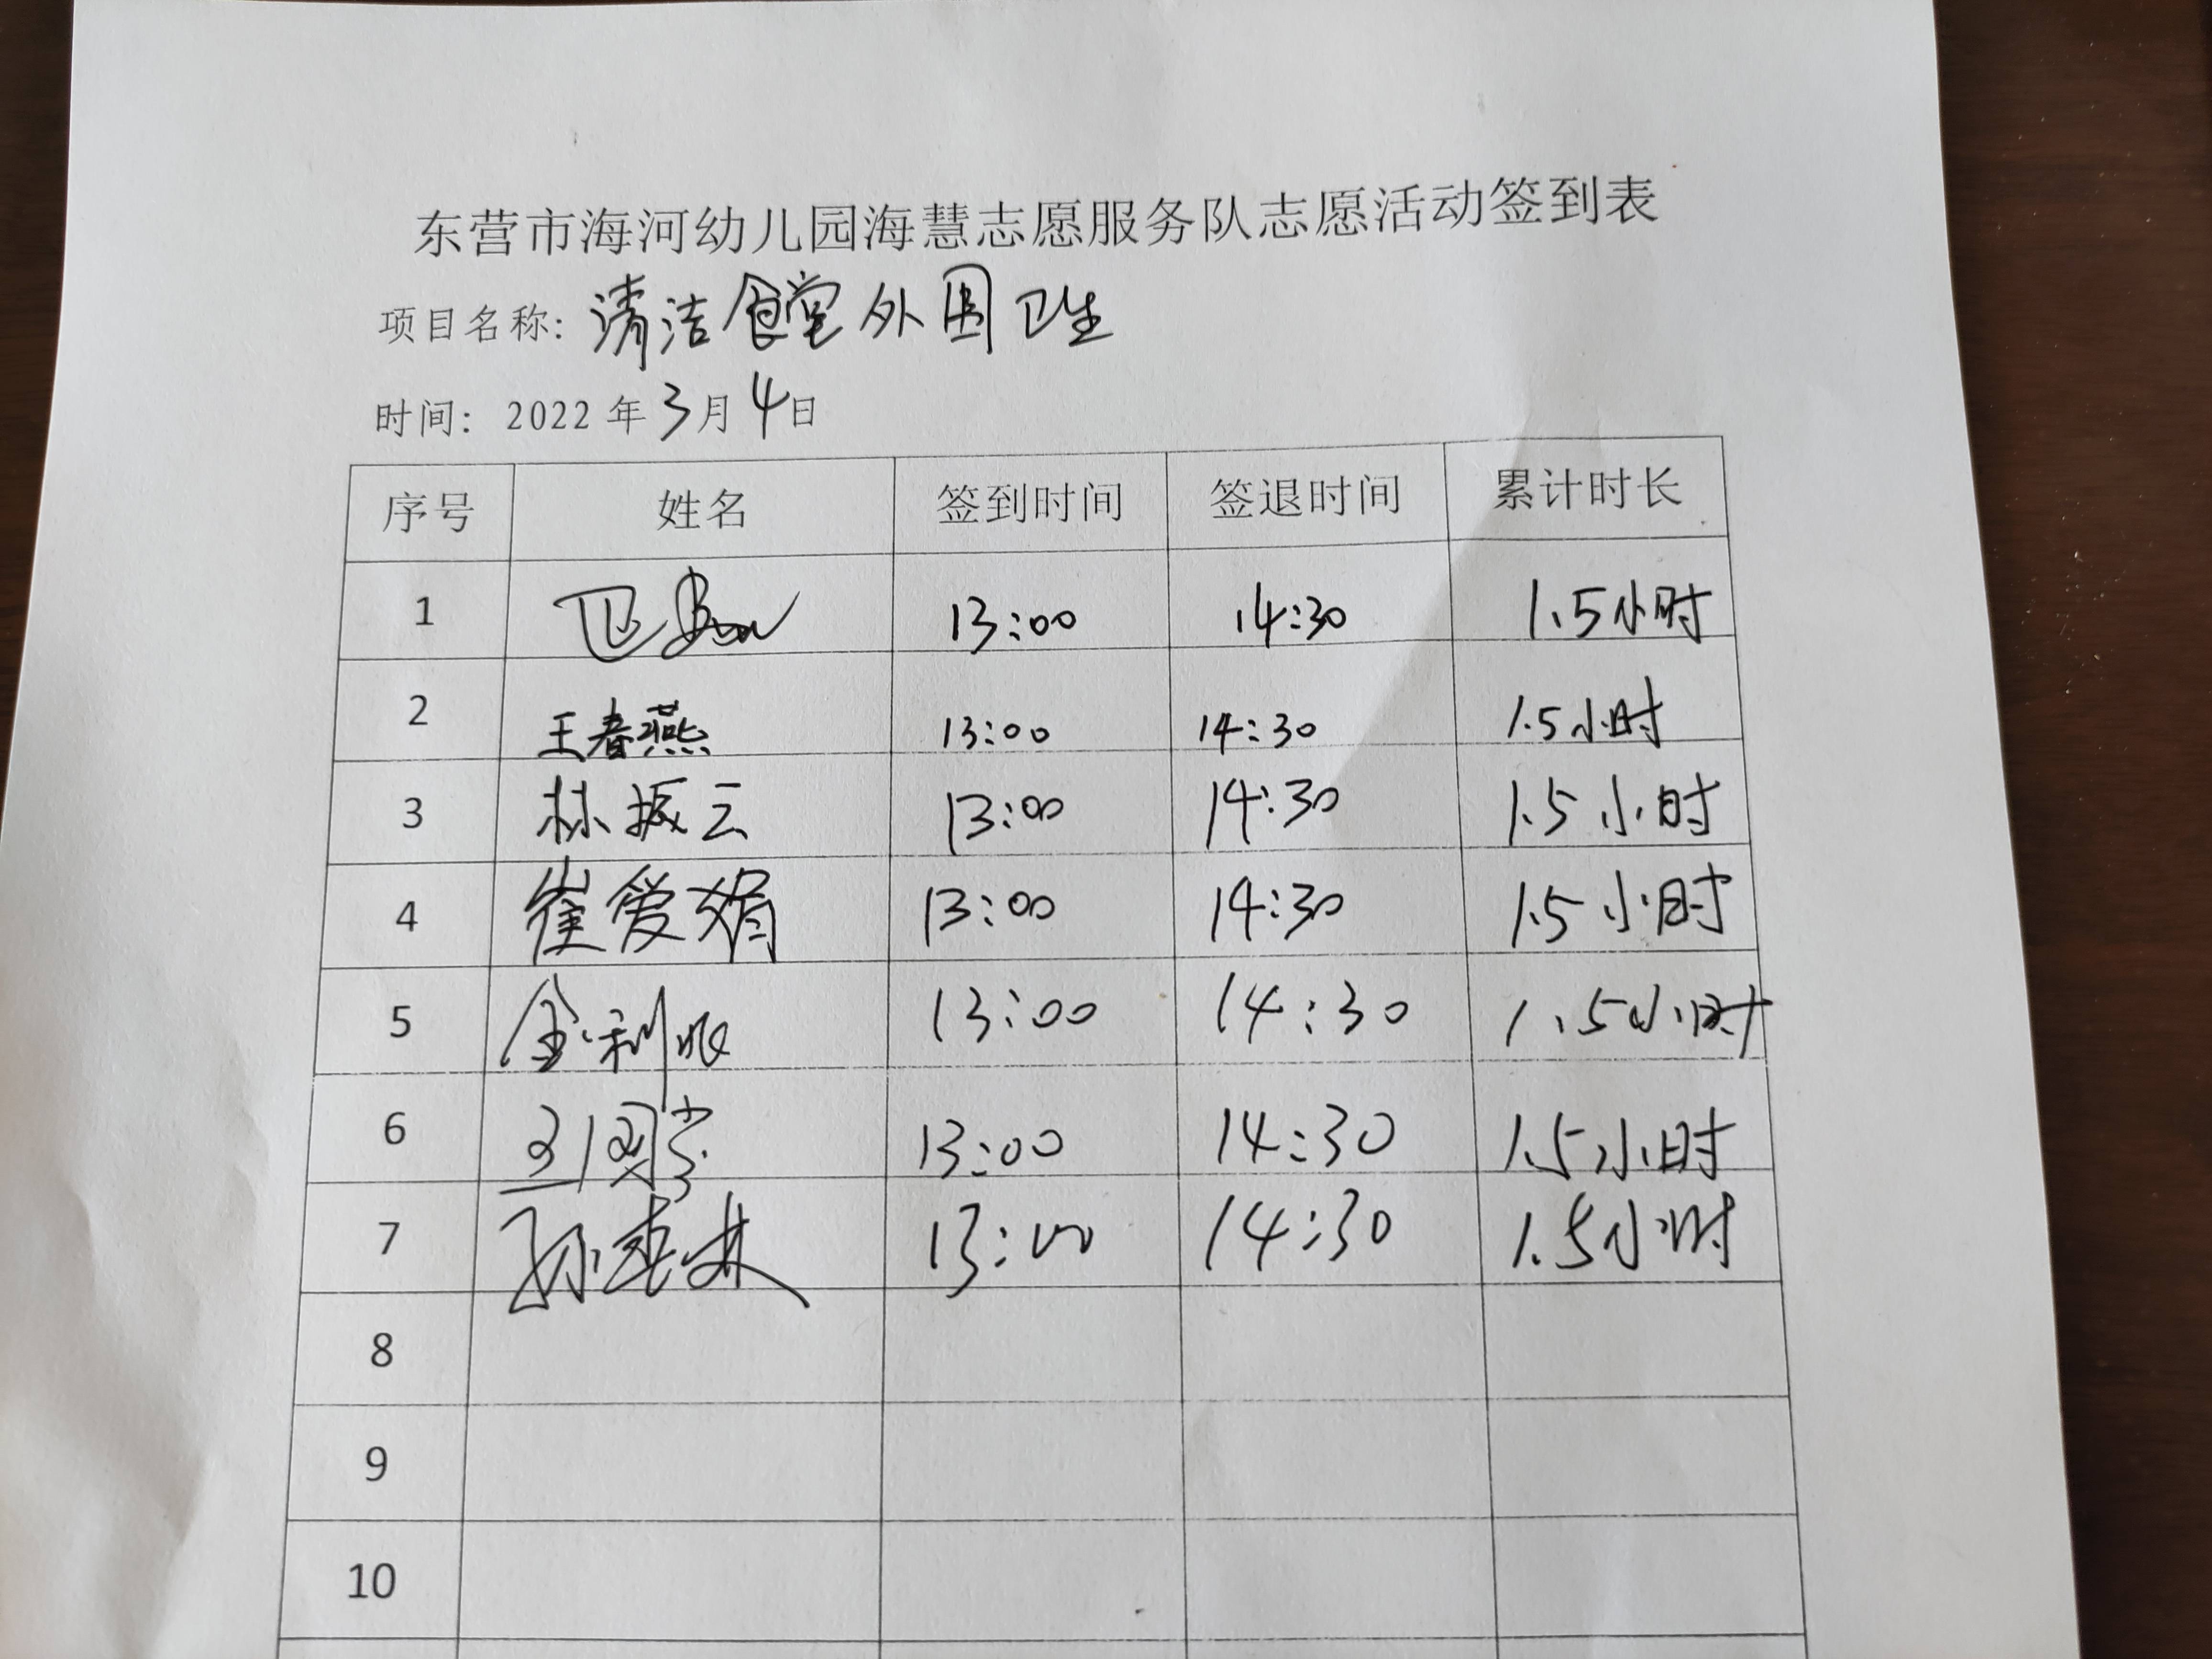 东营市海河幼儿园海慧志愿服务队志愿活动签到表
项目名称: 清洁食堂外围卫生
时间: 2022年3月4日
序号 姓名 签到时间 签退时间 累计时长
1 13:00 14:30 1.5小时
2 王春燕 13:00 14:30 1.5小时
3 林振云 13:00 14:30 1.5小时
4 崔爱娟 13:00 14:30 1.5小时
5 金利 13:00 14:30 1.5小时
6 13:00 14:30 1.5小时
7 孙 13:00 14:30 1.5小时
8
9
10